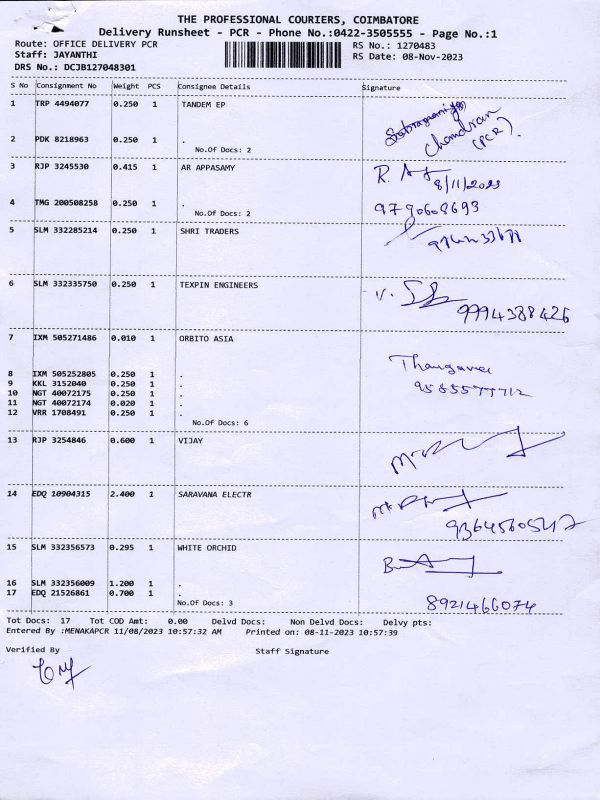 THE PROFESSIONAL COURIERS, COIMBATORE
Delivery Runsheet - PCR - Phone No.:0422-3505555 - Page No.:1
Route: OFFICE DELIVERY PCR RS No.: 1270483
Staff: JAYANTHI RS Date: 08-Nov-2023
DRS No.: DCJB127048301
S No Consignment No Weight PCS Consignee Details Signature
1 TRP 4494077 0.250 1 TANDEM EP
Chandran
2 PDK 8218963 0.250 1 . (PCR).
No.Of Docs: 2
3 RJP 3245530 0.415 1 AR APPASAMY R.
8/11/2023
4 TMG 200508258 0.250 1 . 9790608693
No.Of Docs: 2
5 SLM 332285214 0.250 1 SHRI TRADERS
6 SLM 332335750 0.250 1 TEXPIN ENGINEERS V.
9994388426
7 IXM 505271486 0.010 1 ORBITO ASIA
Thangavel
8 IXM 505252805 0.250 1 .
9 KKL 3152040 0.250 1 . 9585577712
10 NGT 40072175 0.250 1 .
11 NGT 40072174 0.020 1 .
12 VRR 1708491 0.250 1 .
No.Of Docs: 6
13 RJP 3254846 0.600 1 VIJAY
14 EDQ 10904315 2.400 1 SARAVANA ELECTR
9364560547
15 SLM 332356573 0.295 1 WHITE ORCHID
16 SLM 332356009 1.200 1 .
17 EDQ 21526861 0.700 1 .
No.Of Docs: 3 8921466074
Tot Docs: 17 Tot COD Amt: 0.00 Delvd Docs: Non Delvd Docs: Delvy pts:
Entered By :MENAKAPCR 11/08/2023 10:57:32 AM Printed on: 08-11-2023 10:57:39
Verified By Staff Signature